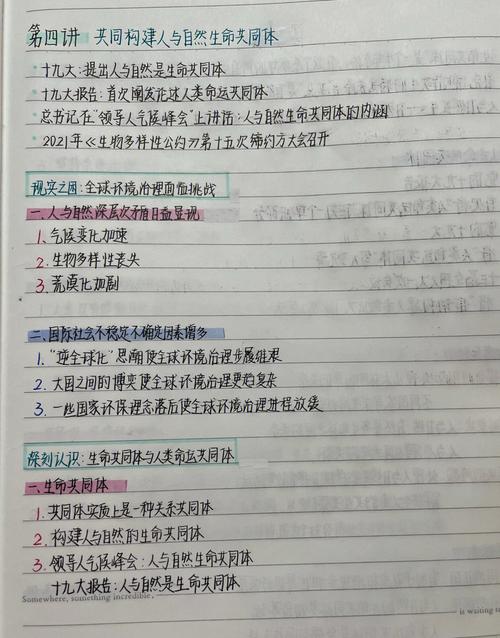 第四讲 共同构建人与自然生命共同体
十九大:提出人与自然是生命共同体
十九大报告:首次阐发论述人类命运共同体
总书记在“领导人气候峰会”上讲话:人与自然生命共同体的内涵
2021年《生物多样性公约》第十五次缔约方大会召开
现实之困:全球环境治理面临挑战
一、人与自然深层次矛盾日益显现
1.气候变化加速
2.生物多样性丧失
3.荒漠化加剧
二、国际社会不稳定不确定因素增多
1.“逆全球化”思潮使全球环境治理步履维艰
2.大国之间的博弈使全球环境治理更趋复杂
3.一些国家环保理念落后使全球环境治理进程放缓
深刻认识:生命共同体与人类命运共同体
一、生命共同体
1.共同体实质上是一种关系共同体
2.构建人与自然的生命共同体
3.领导人气候峰会:人与自然生命共同体
十九大报告:人与自然是生命共同体
Somewhere, something incredible,
is waiting to